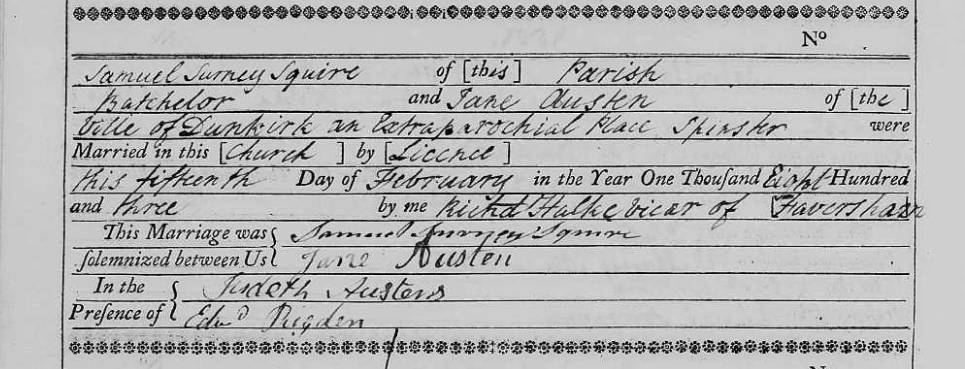 No
Samuel Surney Squire of [this] Parish
Batchelor and Jane Austen of [the]
Ville of Dunkirk an Extraparochial Place Spinster were
Married in this [Church] by [Licence]
this fifteenth Day of February in the Year One Thousand Eight Hundred
and three by me Richd Halke vicar of Faversham
This Marriage was Samuel Surney Squire
solemnized between Us Jane Austen
In the Judeth Austens
Presence of Edwd Rigden
No